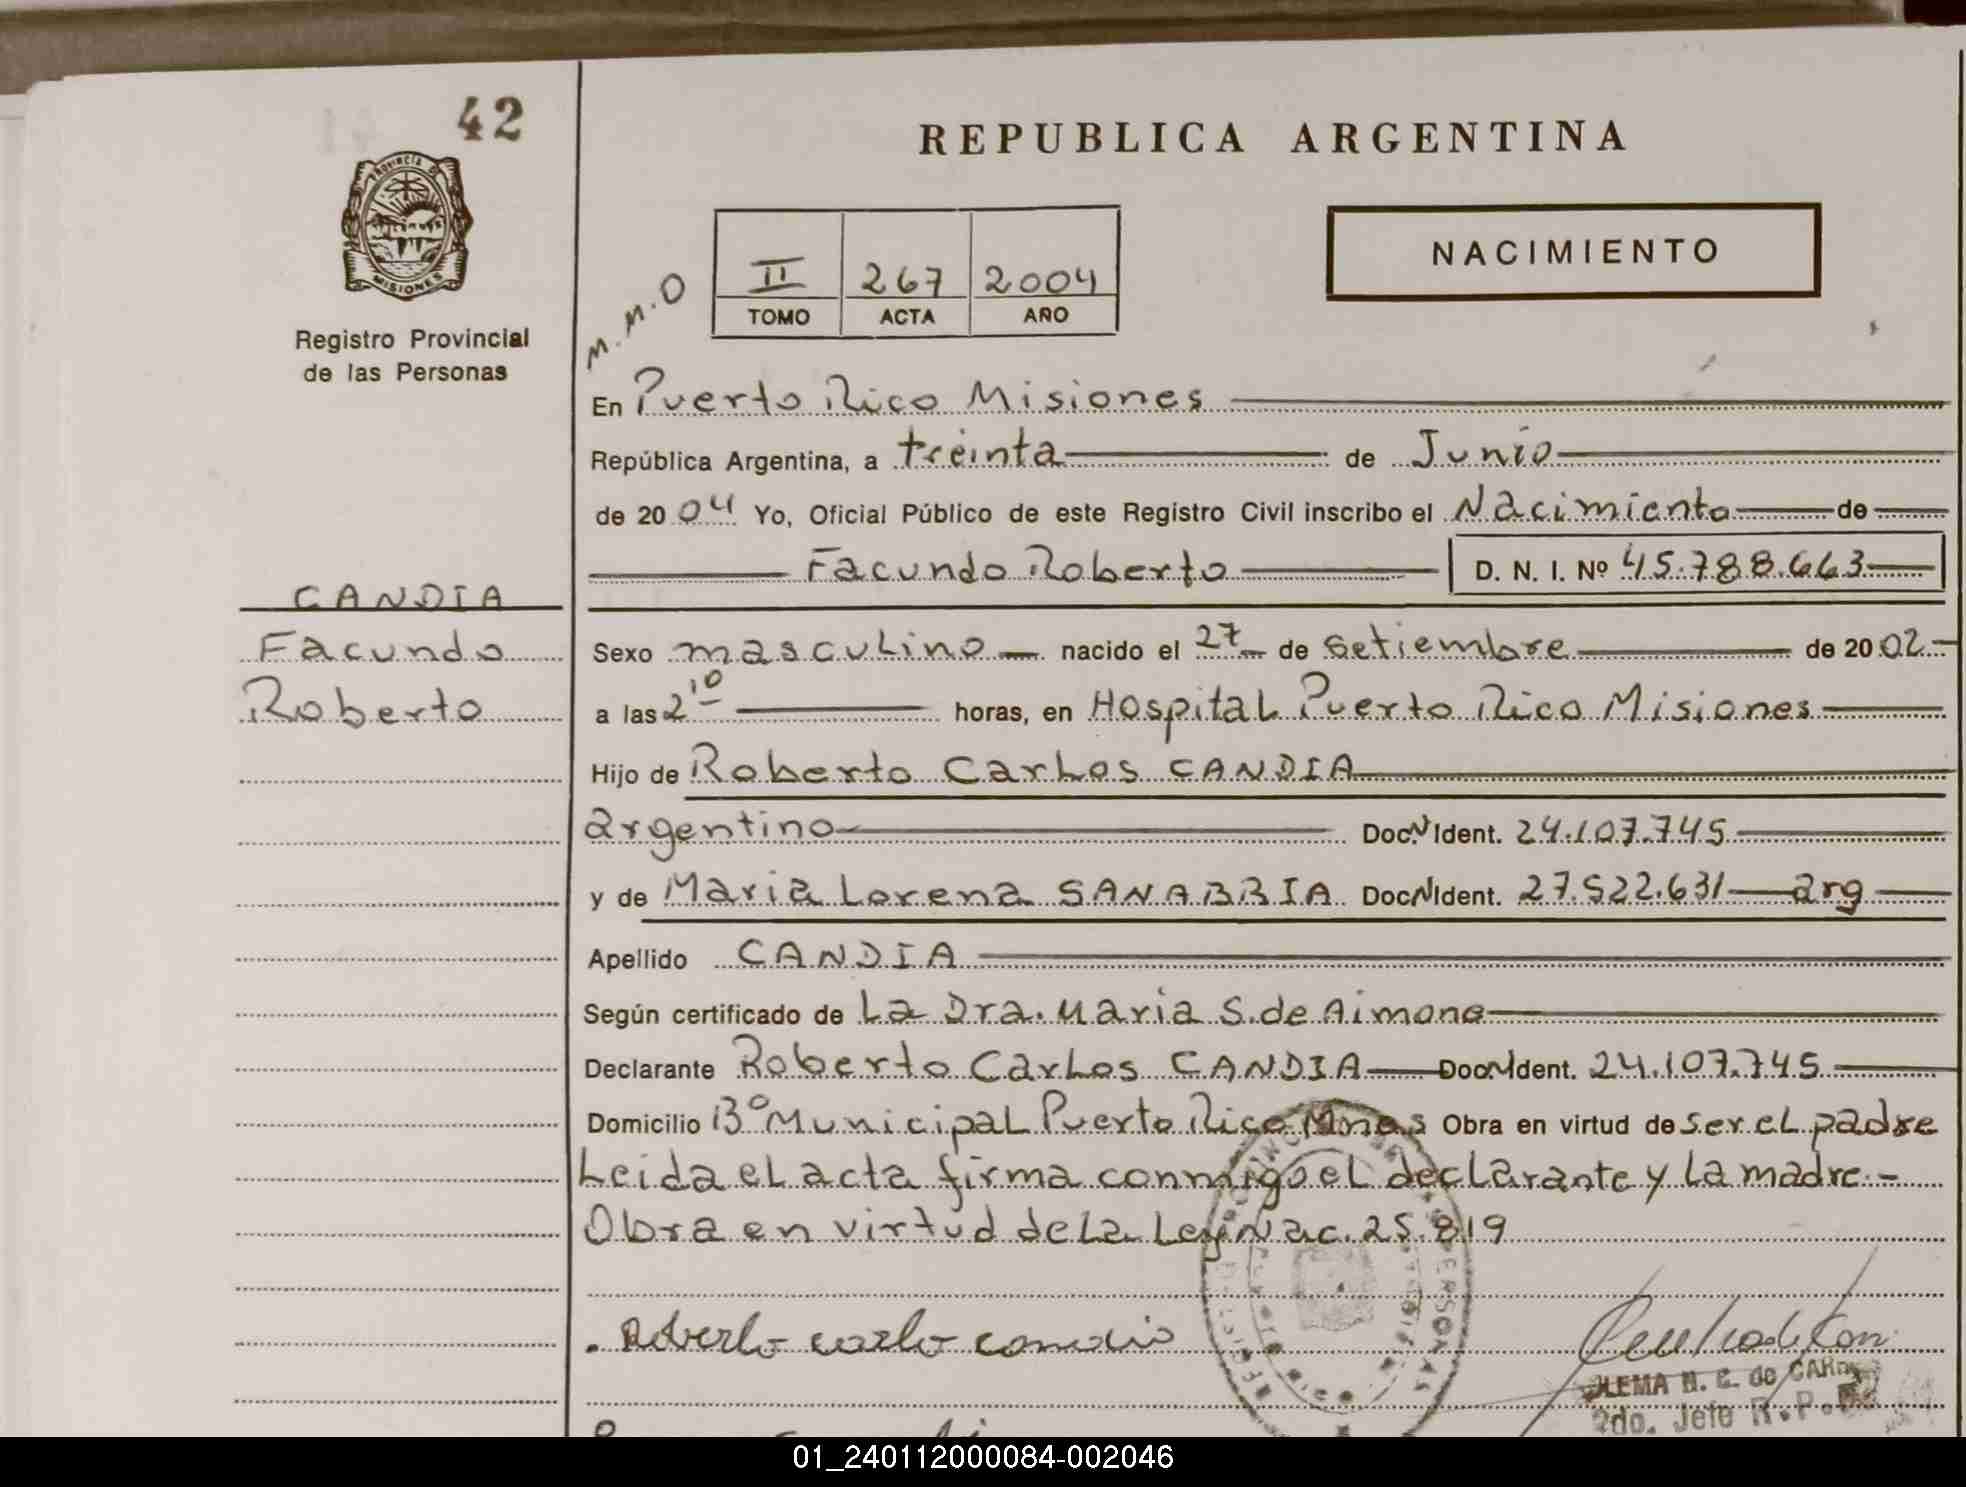 42
REPUBLICA ARGENTINA
PROVINCIA DE
MISIONES
Registro Provincial
de las Personas
M.M.O
II 267 2004
TOMO ACTA AÑO
NACIMIENTO
En Puerto Rico Misiones
República Argentina, a treinta de Junio
de 2004 Yo, Oficial Público de este Registro Civil inscribo el Nacimiento de
Facundo Roberto D. N. I. Nº 45.788.663
CANDIA
Facundo
Roberto
Sexo masculino nacido el 27 de setiembre de 2002
a las 2 10 horas, en Hospital Puerto Rico Misiones
Hijo de Roberto Carlos CANDIA
argentino Doc. N Ident. 24.107.745
y de Maria Lorena SANABRIA Doc. N Ident. 27.522.631 arg
Apellido CANDIA
Según certificado de La Dra. Maria S. de Aimone
Declarante Roberto Carlos CANDIA Doc. N Ident. 24.107.745
Domicilio Bº Municipal Puerto Rico Mnes Obra en virtud de ser el padre
Leida el acta firma conmigo el declarante y la madre.-
Obra en virtud de la Ley Nac. 25.819
Roberto Carlo Candia
N. C. de
2do. Jefe R.P.
01_240112000084-002046